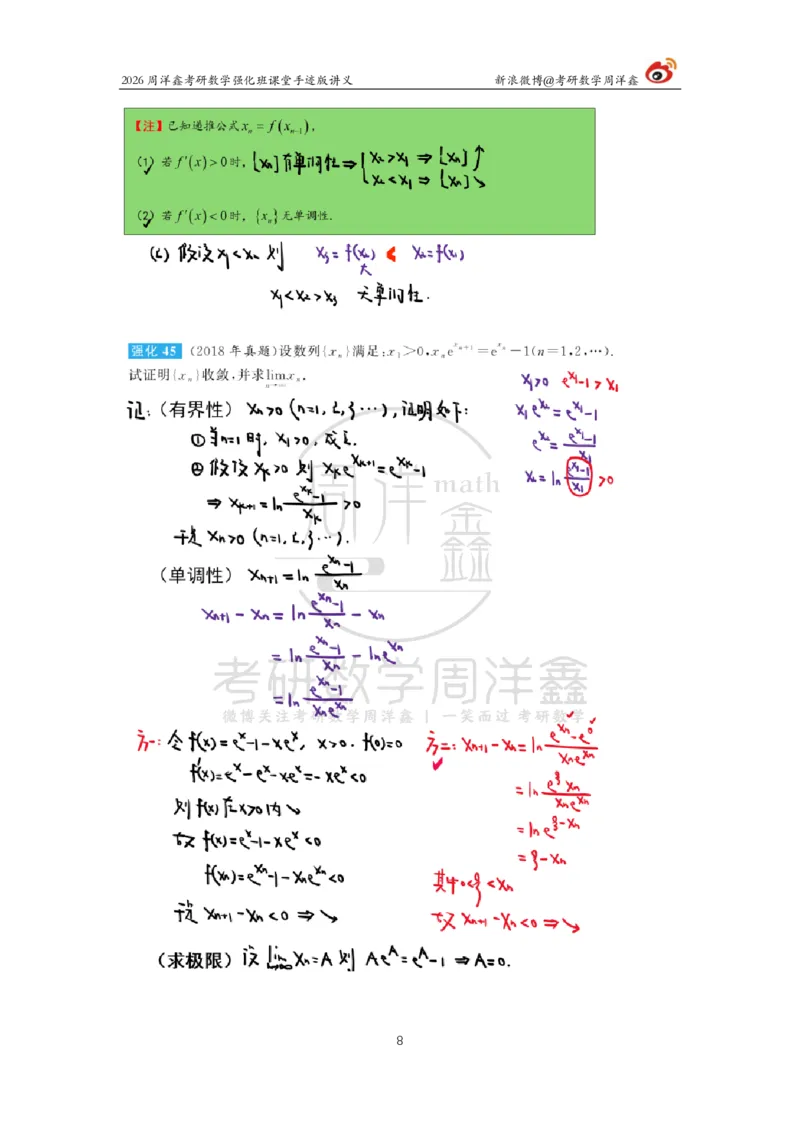 2026 周洋鑫考研数学强化班课堂手迹版讲义 新浪微博@考研数学周洋鑫
【注】已知递推公式 xₙ = f(xₙ₋₁),
(1) 若 f′(x)>0 时, {xₙ}有单调性 ⇒ { x₂>x₁ ⇒ {xₙ}↑
x₂<x₁ ⇒ {xₙ}↘
(2) 若 f′(x)<0 时, {xₙ} 无单调性.
(2) 假设 x₁<x₂ 则 x₃=f(x₂) < x₂=f(x₁)
大
x₁<x₂>x₃ 无单调性.
强化 45 (2018 年真题)设数列{xₙ}满足:x₁>0,xₙe^(xₙ₊₁)=e^(xₙ)-1(n=1,2,⋯).
试证明{xₙ}收敛,并求 lim_(n→∞) xₙ.
x₁>0 e^(x₁)-1>x₁
x₁e^(x₂)=e^(x₁)-1
e^(x₂)=(e^(x₁)-1)/x₁
x₂=ln (e^(x₁)-1)/x₁ >0
证:(有界性) xₙ>0 (n=1,2,3⋯), 证明如下:
① 当n=1时, x₁>0, 成立.
② 假设 xₖ>0 则 xₖe^(xₖ₊₁)=e^(xₖ)-1
⇒ xₖ₊₁=ln (e^(xₖ)-1)/xₖ >0
于是 xₙ>0 (n=1,2,3⋯).
(单调性) xₙ₊₁=ln (e^(xₙ)-1)/xₙ
xₙ₊₁-xₙ=ln (e^(xₙ)-1)/xₙ - xₙ
=ln (e^(xₙ)-1)/xₙ - lne^(xₙ)
=ln (e^(xₙ)-1)/(xₙe^(xₙ))
周洋鑫 math
考研数学周洋鑫
微博关注考研数学周洋鑫 | 一笑而过 考研数学
方一: 令 f(x)=e^x-1-xe^x, x>0. f(0)=0
f′(x)=e^x-e^x-xe^x=-xe^x<0
则 f(x)在x>0内↘
故 f(x)=e^x-1-xe^x<0
f(xₙ)=e^(xₙ)-1-xₙe^(xₙ)<0
于是 xₙ₊₁-xₙ<0 ⇒↘
方二: xₙ₊₁-xₙ=ln (e^(xₙ)-e^0)/(xₙe^(xₙ))
=ln (e^ξ xₙ)/(xₙe^(xₙ))
=lne^(ξ-xₙ)
=ξ-xₙ
其中0<ξ<xₙ
故 xₙ₊₁-xₙ<0 ⇒↘
(求极限) 设 lim_(n→∞) xₙ=A 则 Ae^A=e^A-1 ⇒A=0.
8